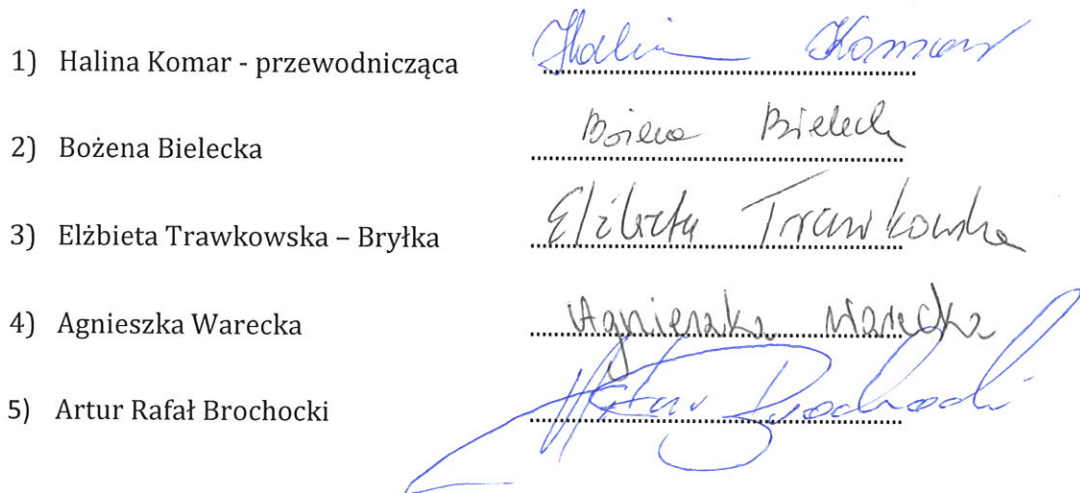 1) Halina Komar - przewodnicząca Halina Komar
2) Bożena Bielecka Bożena Bielecka
3) Elżbieta Trawkowska – Bryłka Elżbieta Trawkowska
4) Agnieszka Warecka Agnieszka Warecka
5) Artur Rafał Brochocki Artur Brochocki